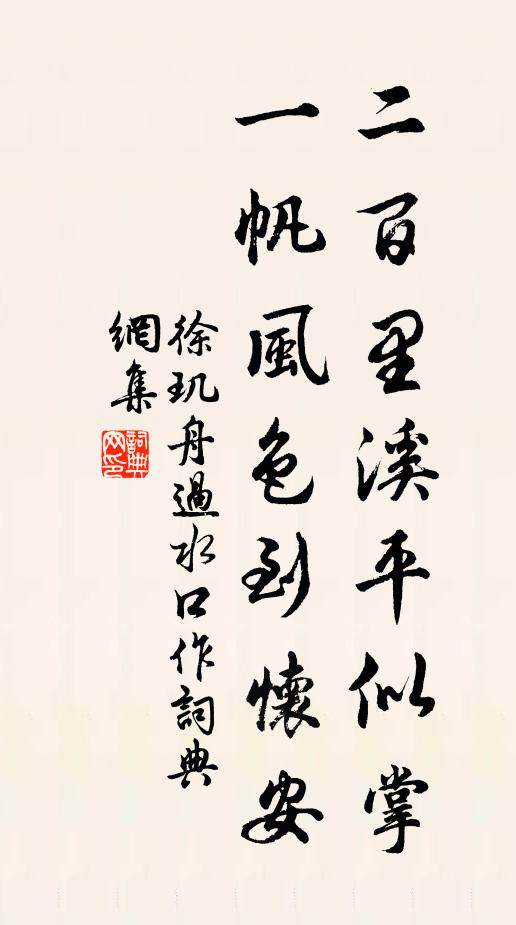 二百里溪平似掌
一帆風色到懷安
徐玑舟過水口作詞典
網集
詞典网印